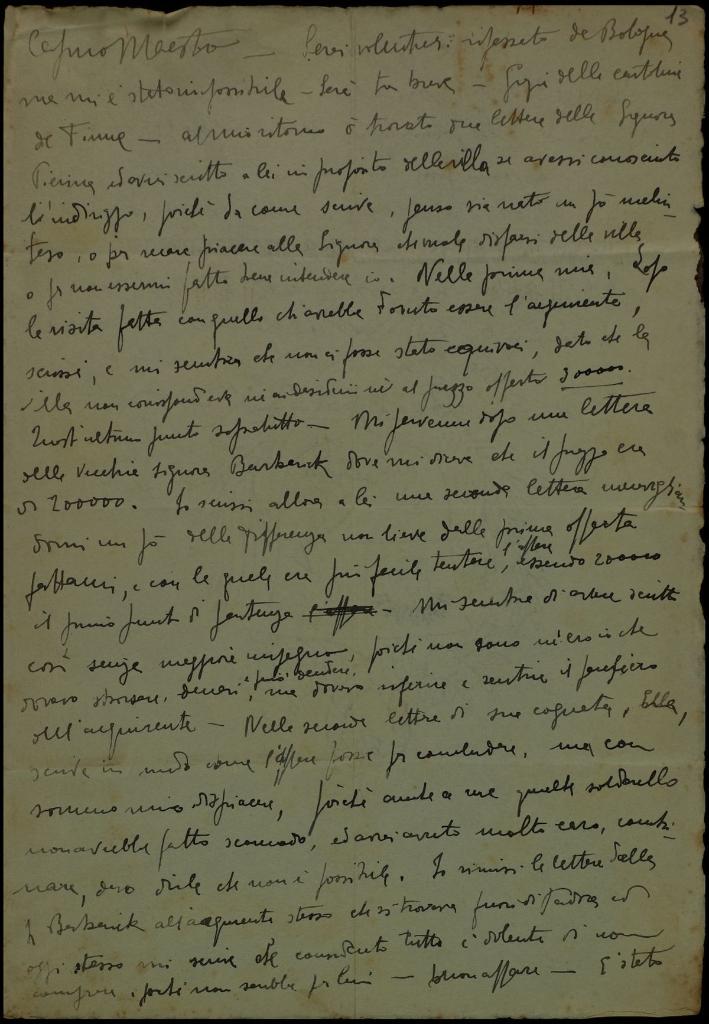 13
Caro Maestro — Sarei volentieri ripassato da Bologna
ma mi è stato impossibile — Sarà fra breve — Gigi delle cartoline
da Fiume — al mio ritorno ò trovato due lettere della Signora
Pierina ed avrei scritto a lei in proposito della villa se avessi conosciuto
l'indirizzo, poichè da come scrive, penso sia nato un pò malin-
teso, o per recare piacere alla Signora che vuole disfarsi della villa
o per non essermi fatto bene intendere io. Nella prima mia, dopo
la visita fatta con quello che avrebbe dovuto essere l'acquirente,
scrissi, e mi sembra che non ci fosse stato equivoci, dato che la
villa non corrispondeva nè ai desideri nè al prezzo offerto 300000.
Quest'ultimo punto soprattutto — Mi pervenne dopo una lettera
della vecchia signora Barbarich dove mi diceva che il prezzo era
di 200000. Io scrissi allora a lei una seconda lettera meraviglian
domi un pò della differenza non lieve dalla prima offerta
fattami, e con la quale era più facile tentare, l'affare essendo 200000
il primo punto di partenza — Mi sembra di avere scritto
così senza maggiore impegno, poichè non sono nè ero io che
dovevo sborsare denari, ma dovevo riferire e sentire il pensiero
dell'acquirente — Nella seconda lettera di sua cognata, Ella,
scrive in modo come l'affare fosse per concludere, ma con
sommo mio dispiacere, poichè anche a me qualche solderello
non avrebbe fatto scomodo, ed avrei avuto molto caro, conti-
nuare, devo dirle che non è possibile. Io rimisi la lettera della
Barbarich all'acquirente stesso che si trovava fuori di Padova ed
oggi stesso mi scrive che considerato tutto è dolente di non
comprare, perchè non sarebbe per lui — buon affare — È stato